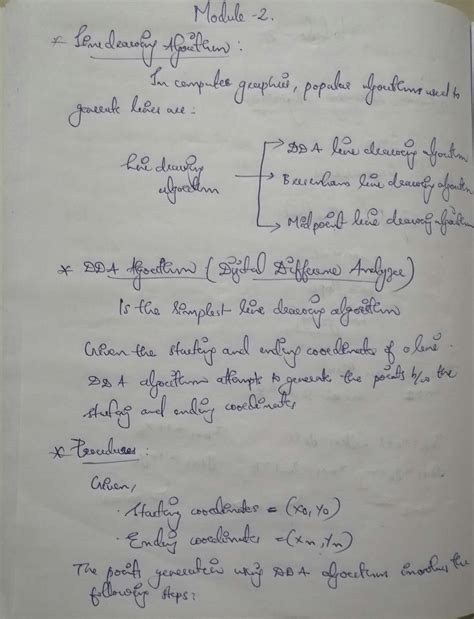 Module - 2.
* Line drawing Algorithm :
In computer graphics, popular algorithms used to
generate lines are :
DDA line drawing algorithm
Line drawing
algorithm
Bresenhams line drawing algorithm
Midpoint line drawing algorithm
* DDA Algorithm ( Digital Difference Analyzer )
Is the simplest line drawing algorithm
Given the starting and ending coordinates of a line.
DDA algorithm attempts to generate the points b/w the
starting and ending coordinates
* Procedures :
Given,
· Starting coordinates = (X0, Y0)
· Ending coordinates = (Xn, Yn)
The points generation using DDA algorithm involves the
following steps :